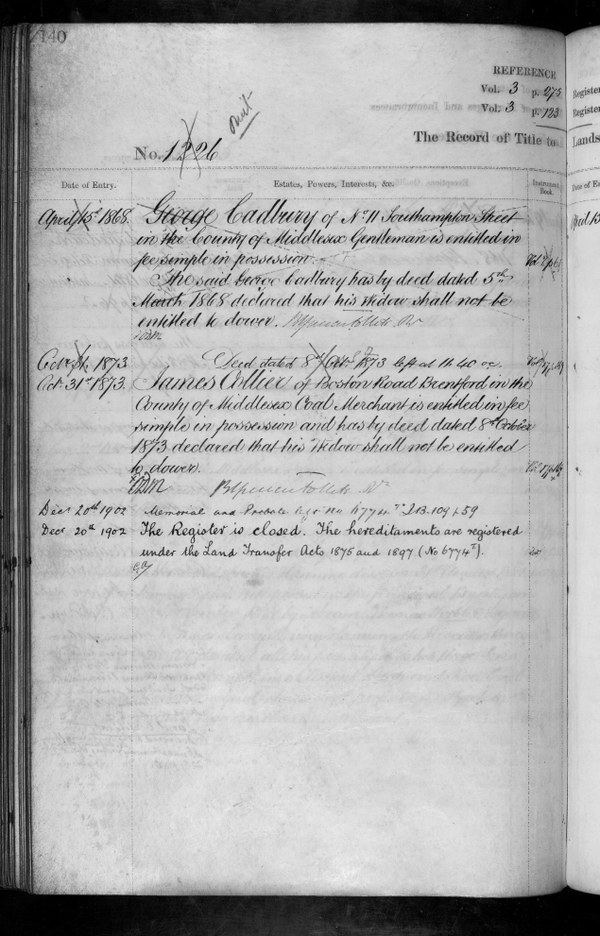 140
REFERENCE
Vol. 3 p. 275
Vol. 3 p. 123
omit
The Record of Title to
No. 1326
Date of Entry.
Estates, Powers, Interests, &c.
Instrument Book.
April 15 1868. George Cadbury of No. 11 Southampton Street
in the County of Middlesex Gentleman is entitled in
fee simple in possession.
The said George Cadbury has by deed dated 5th
March 1868 declared that his Widow shall not be
entitled to dower.
Octr 31. 1873 Deed dated 8th Octr 1873 left at 11.40
Oct. 31st 1873. James Collier of Boston Road Brentford in the
County of Middlesex Coal Merchant is entitled in fee
simple in possession and has by deed dated 8th October
1873 declared that his Widow shall not be entitled
to dower.
Decr 20th 1902 Memorial and Probate
Decr 20th 1902 The Register is closed. The hereditaments are registered
under the Land Transfer Acts 1875 and 1897 (No 6774).
Register
Register
Lands
Date of En
April 15